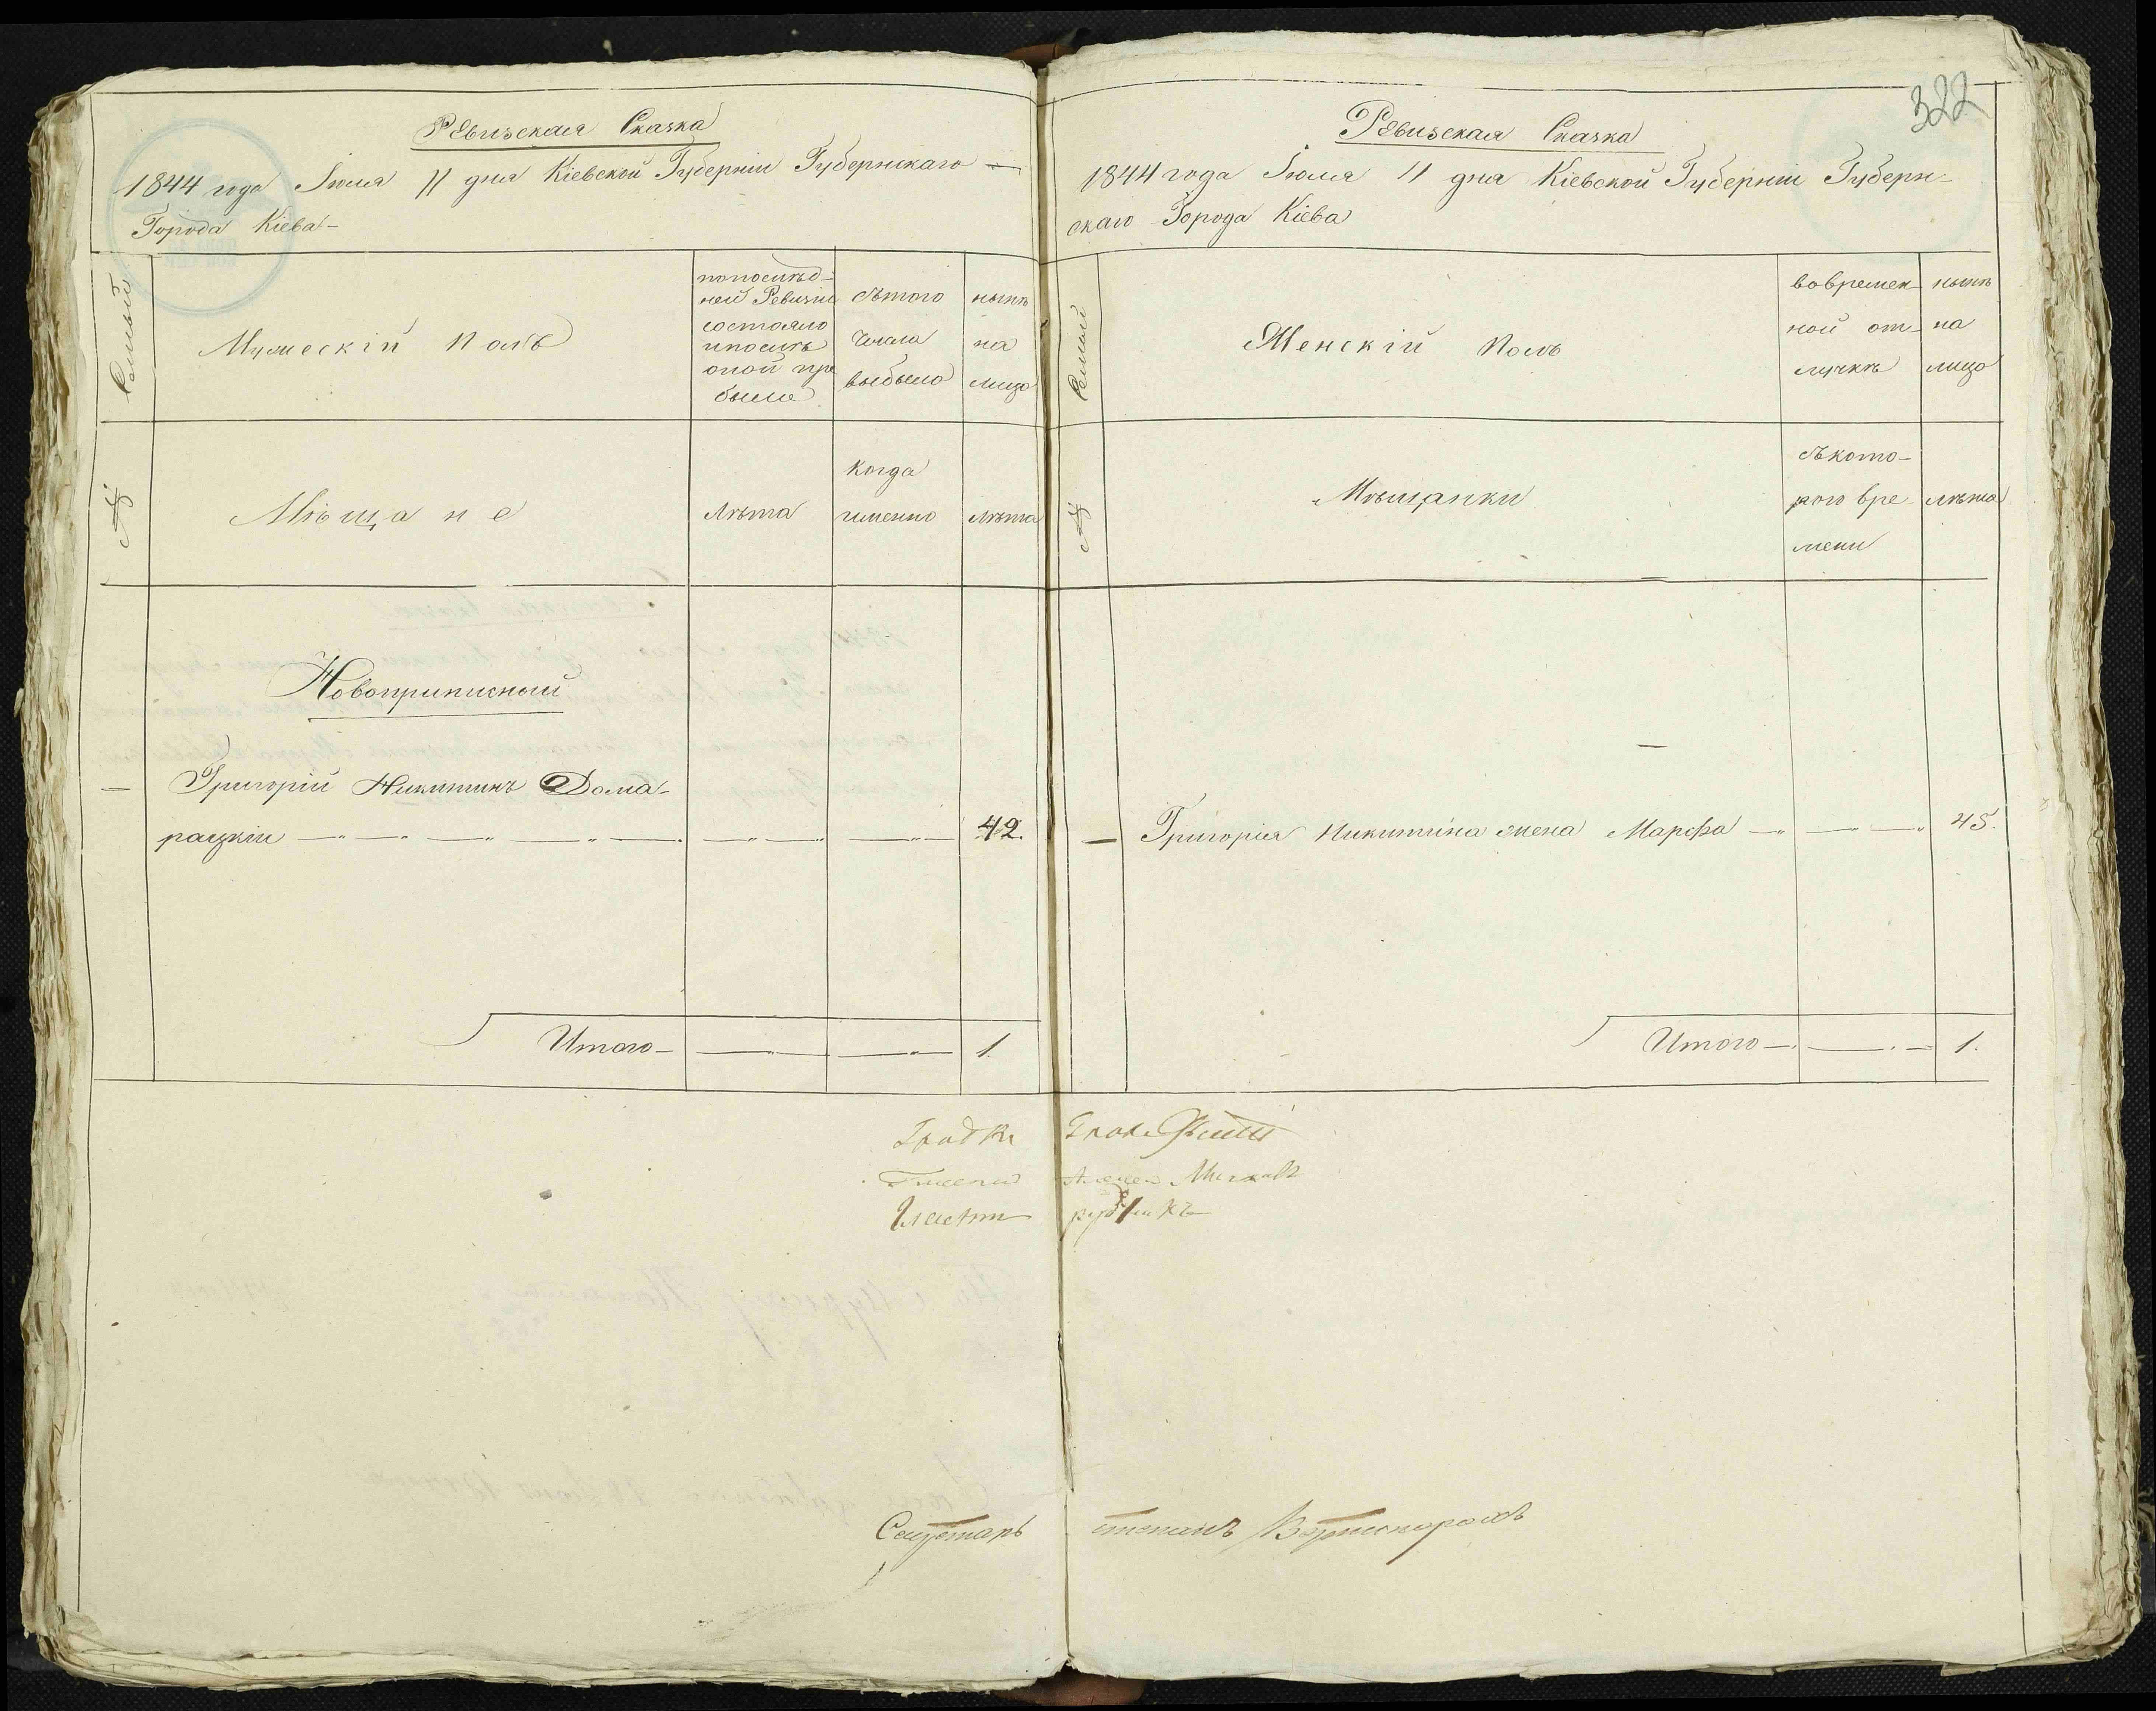 Ревизская Сказка
1844 года Іюля 11 дня Кіевской Губерніи Губернскаго
Города Кіева
Семьи
Мужескій Полъ
попослѣд-
ней Ревизіи
состояло
ипослѣ
оной при
было
Изътого
числа
выбыло
нынѣ
на
лицо
№
Мѣщане
Лѣта
Когда
имянно
лѣта
Новоприписный
Григорій Никитинъ Дома-
рацкій 42.
Итого 1.
322
Ревизская Сказка
1844 года Іюля 11 дня Кіевской Губерніи Губерн-
скаго Города Кіева
Семьи
Женскій Полъ
вовремен
ной от-
лучкѣ
нынѣ
на
лицо
№
Мѣщанки
Съкото-
рого вре-
мени
лѣта
Григорія Никитина жена Марфа 45.
Итого 1.
Гласн
Степанъ